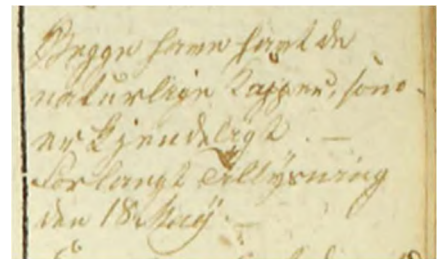 Begge have havt de
naturlige Kopper, som
er kjendeligt. —
forlangt Tillysning
den 18 May. —